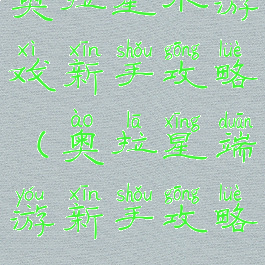 奥拉星 游
xì xīn shǒu gōng lüè
戏新手攻略
ào lā xīng duān
（奥拉星端
yóu xīn shǒu gōng lüè
游新手攻略